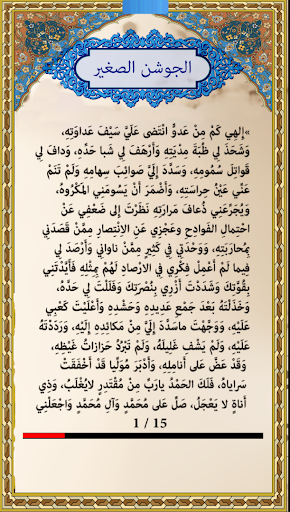 الجوشن الصغير
»إِلهِي كَمْ مِنْ عَدُوٍّ انْتَضى عَلَيَّ سَيْفَ عَداوَتِهِ،
وَشَحَذَ لِي ظُبَةَ مِدْيَتِهِ وَأَرْهَفَ لِي شَبا حَدِّهِ، وَدافَ لِي
قَواتِلَ سُمُومِهِ، وَسَدَّدَ إِلَيَّ صَوائِبَ سِهامِهِ وَلَمْ تَنَمْ
عَنِّي عَيْنُ حِراسَتِهِ، وَأَضْمَرَ أَنْ يَسُومَنِي المَكْرُوهَ،
وَيُجَرِّعَنِي ذُعافَ مَرارَتِهِ نَظَرْتَ إِلى ضَعْفِي عَنْ
احْتِمالِ الفَوادِحِ وَعَجْزِي عَنِ الاِنْتِصارِ مِمَّنْ قَصَدَنِي
بِمُحارَبَتِهِ، وَوَحْدَتِي فِي كَثِيرٍ مِمَّنْ ناوانِي وَأَرْصَدَ لِي
فِيما لَمْ أَعْمِلْ فِكْرِي فِي الارْصادِ لَهُمْ بِمِثْلِهِ فَأَيَّدْتَنِي
بِقُوَّتِكَ وَشَدَدْتَ أَزْرِي بِنُصْرَتِكَ وَفَلَلْتَ لِي حَدَّهُ،
وَخَذَلْتَهُ بَعْدَ جَمْعِ عَدِيدِهِ وَحَشْدِهِ وَأَعْلَيْتَ كَعْبِي
عَلَيْهِ، وَوَجَّهْتَ ماسَدَّدَ إِلَيَّ مِنْ مَكائِدِهِ إِلَيْهِ، وَرَدَدْتَهُ
عَلَيْهِ، وَلَمْ يَشْفِ غَلِيلَهُ، وَلَمْ تَبْرُدْ حَزازاتُ غَيْظِهِ،
وَقَدْ عَضَّ عَلى أَنامِلِهِ، وَأَدْبَرَ مُوَلِّيا قَدْ أَخْفَقَتْ
سَراياهُ، فَلَكَ الحَمْدُ يارَبِّ مِنْ مُقْتَدِرٍ لايُغْلَبُ، وَذِي
أَناةٍ لا يَعْجَلُ، صَلِّ عَلى مُحَمَّدٍ وَآلِ مُحَمَّدٍ وَاجْعَلْنِي
1 / 15